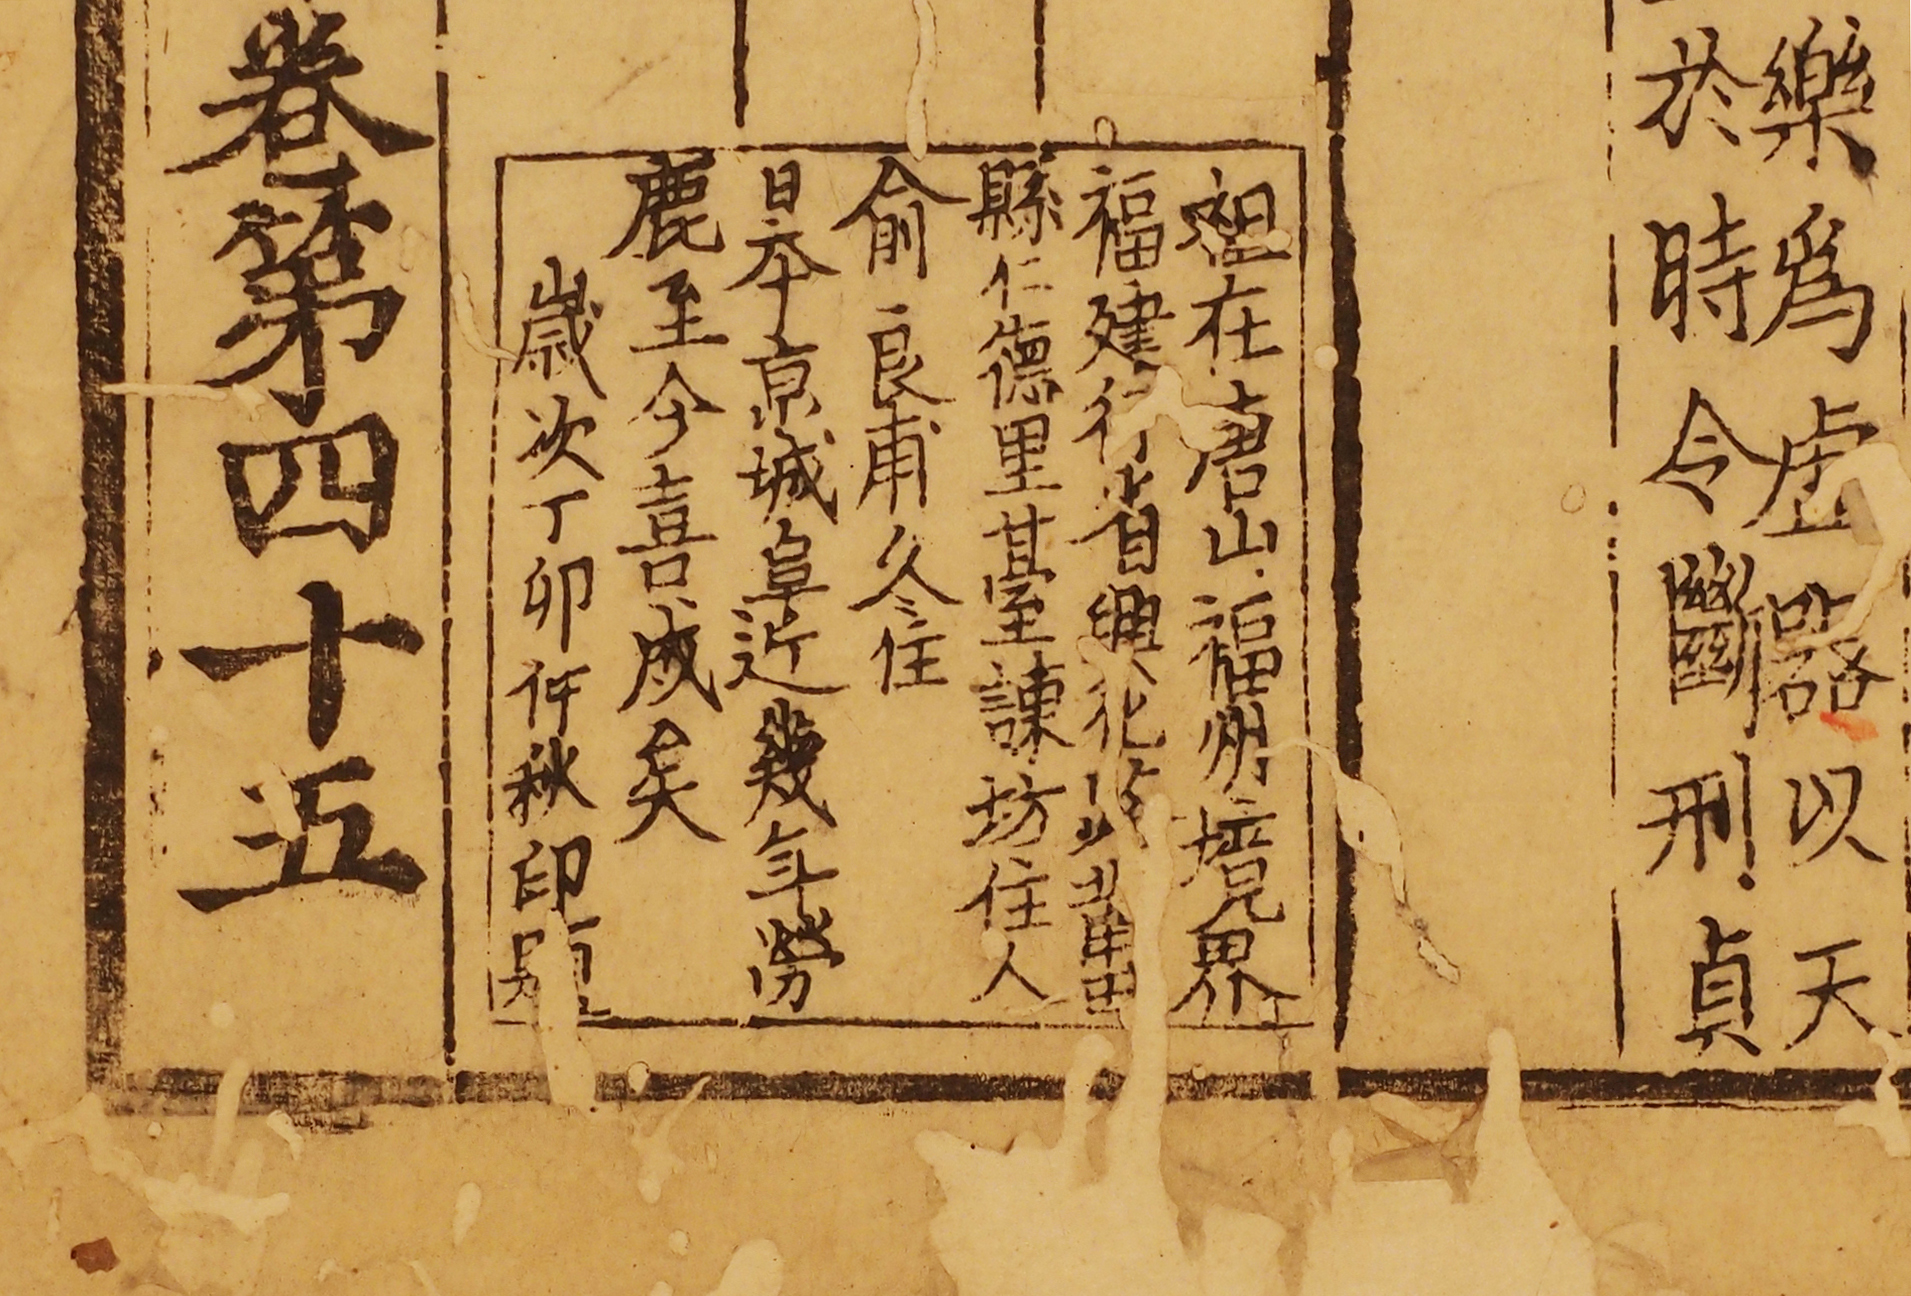 樂爲虛器以天
於時令斷刑貞
祖在唐山福州境界
福建行省興化路莆田
縣仁德里䑓諫坊住人
俞良甫久住
日本京城阜近幾年勞
鹿至今喜成矣
歲次丁卯仲秋印題
卷第四十五